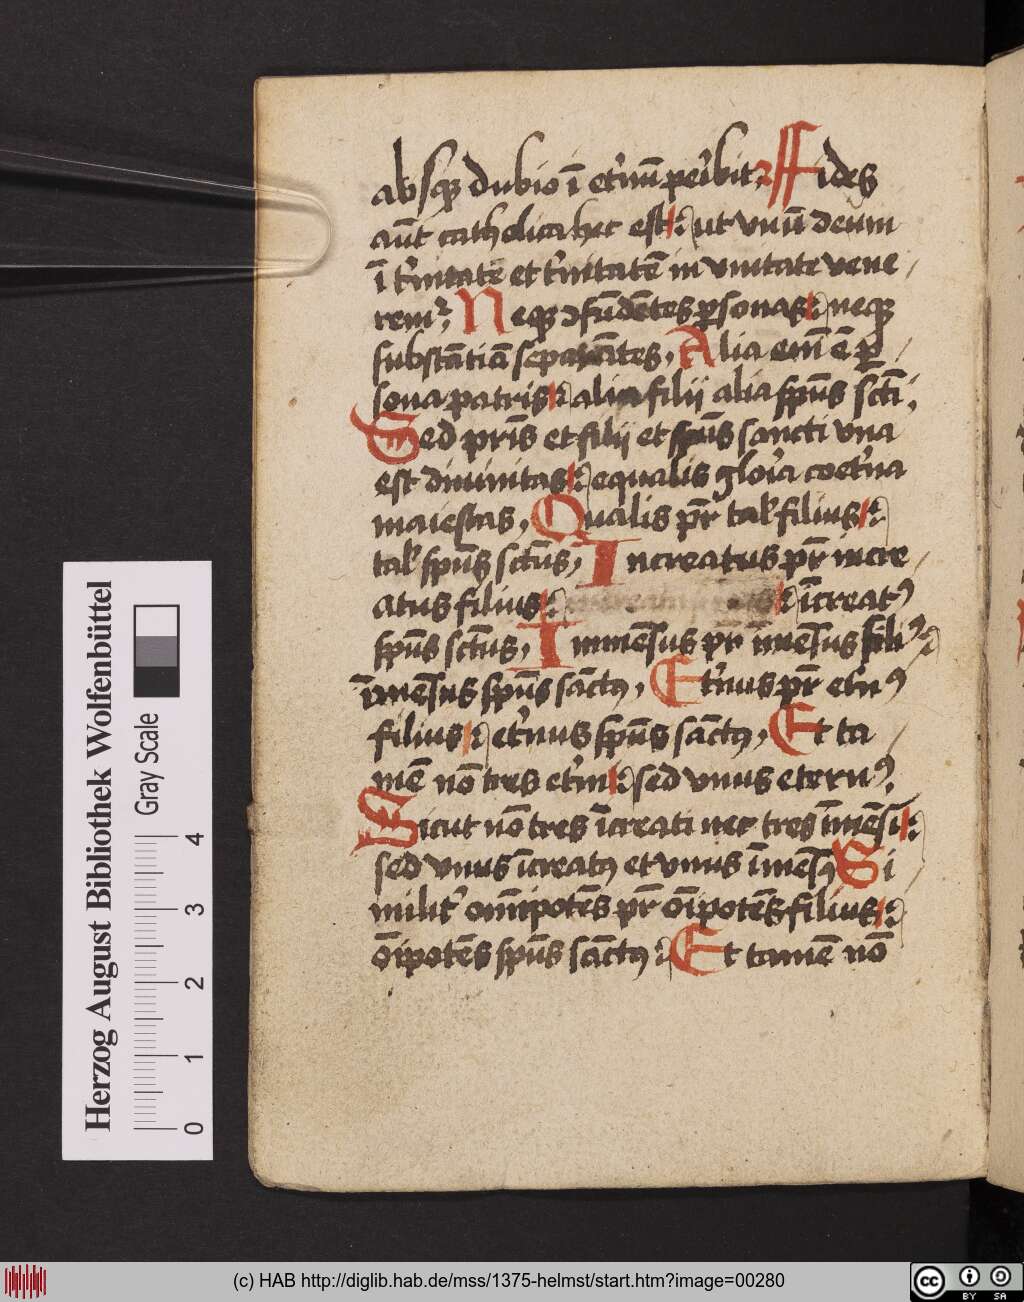 absq dubio ī et'nū peribit Fides
aūt catholica hec est : ut vnū deum
ī t'nitate et t'nitatē in vnitate vene
rem² Neq ↄfūdētes psonas : neq
substātiā separātes, Alia enī ē p
sona patris : alia filii alia spūs sctī,
Sed pris et filii et spūs sancti vna
est diuinitas : equalis glor'a coet'na
maiestas, Qualis pr̄ tal' filius :
tal' spūs sctūs, Increatus pr̄ incre
atus filius : īcreat9
spūs sctūs, Immēsus pr īmēsus fili9
īmēsus spūs sāct9, Et'nus pr̄ etn9
filius : et'nus spūs sāct9, Et ta
mē nō tres et'ni : sed vnus etern9,
Sicut nō tres īcreati nec tres īmēsi :
sed vnus īcreat9 et vnus īmēs9 Si
milit' omīpotēs pr̄ oīpotēs filius :
oīpotēs spūs sāct9 : Et tamē nō
Herzog August Bibliothek Wolfenbüttel
Gray Scale
0 1 2 3 4
(c) HAB http://diglib.hab.de/mss/1375-helmst/start.htm?image=00280
cc BY SA